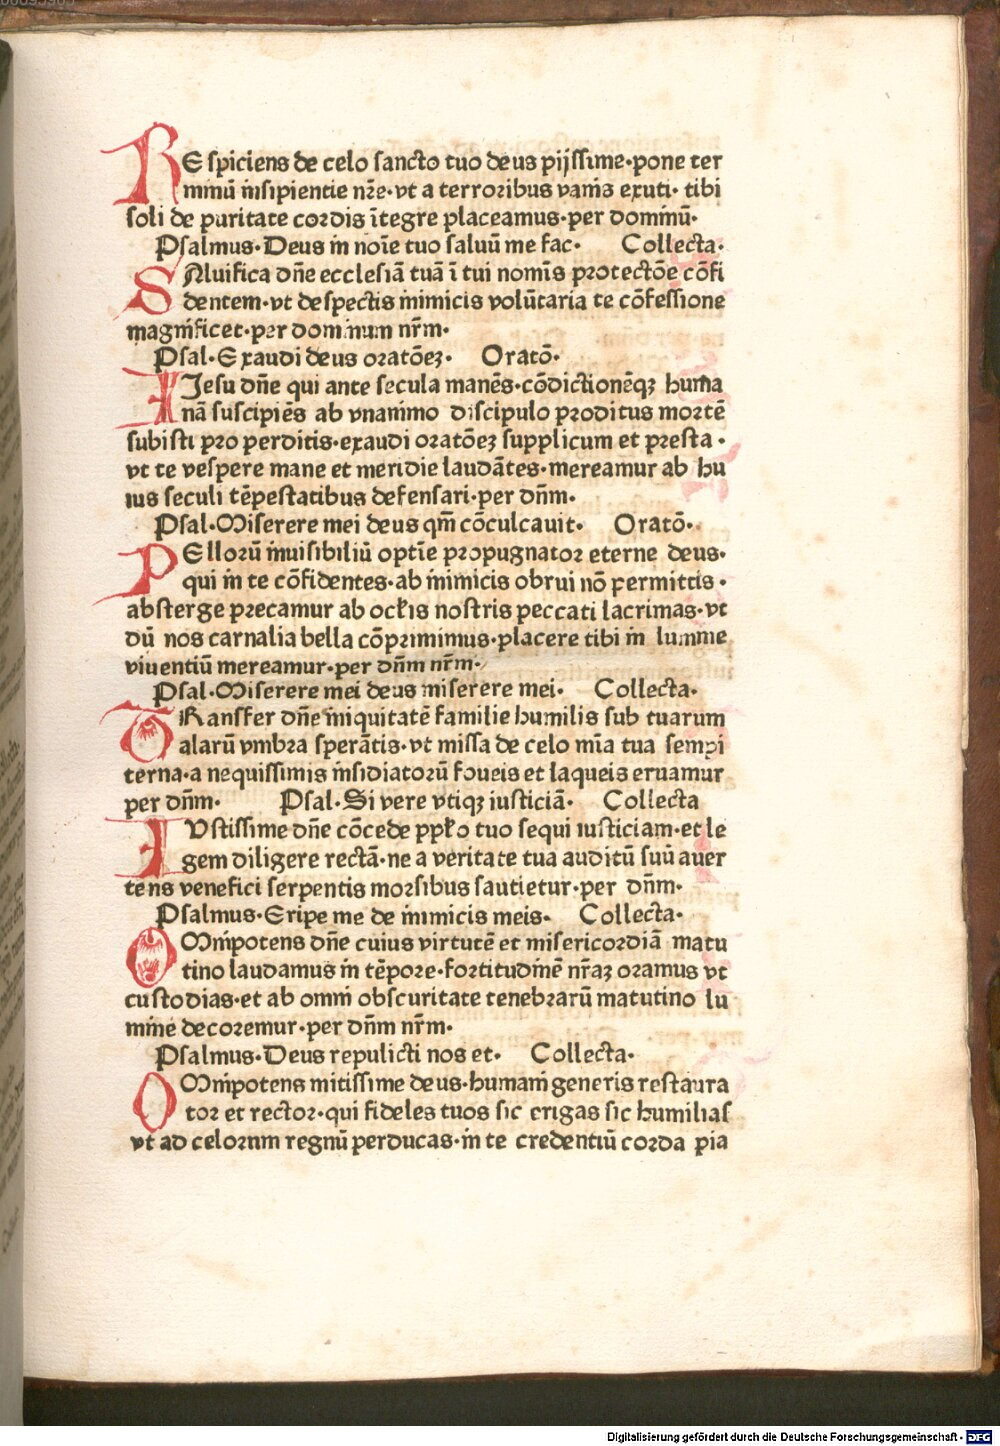 REspiciens de celo sancto tuo deus pijssime·pone ter
minū insipientie nr̄e·vt a terroribus vanis exuti· tibi
soli de puritate cordis ītegre placeamus·per dominū·
Psalmus·Deus in noīe tuo saluū me fac· Collecta·
SAluifica dn̄e ecclesiā tuā ī tui nominis protectōe cōfi
dentem·vt despectis inimicis volūtaria te cōfessione
magnificet·per dominum nr̄m·
Psal·Exaudi deus oratōeʒ· Oratō·
IJesu dn̄e qui ante secula manēs·cōdictionēqʒ huma
nā suscipiēs ab vnanimo discipulo proditus mortē
subisti pro perditis·exaudi oratōeʒ supplicum et presta·
vt te vespere mane et meridie laudātes·mereamur ab hu
ius seculi tēpestatibus defensari·per dn̄m·
Psal·Miserere mei deus qm̄ cōculcauit· Oratō·
PEllorū inuisibiliū optīe propugnator eterne deus·
qui in te cōfidentes·ab inimicis obrui nō permittis·
absterge precamur ab ocƚis nostris peccati lacrimas·vt
dū nos carnalia bella cōprimimus·placere tibi in lumine
viuentiū mereamur·per dn̄m nr̄m·
Psal·Miserere mei deus miserere mei· Collecta·
TRansfer dn̄e iniquitatē familie humilis sub tuarum
alarū vmbra sperātis·vt missa de celo mīa tua sempi
terna·a nequissimis insidiatorū foueis et laqueis eruamur
per dn̄m· Psal·Si vere vtiqʒ iusticiā· Collecta
IVstissime dn̄e cōcede ppƚo tuo sequi iusticiam·et le
gem diligere rectā·ne a veritate tua auditū suū auer
tens venefici serpentis morsibus sautietur·per dn̄m·
Psalmus·Eripe me de inimicis meis· Collecta·
OMnipotens dn̄e cuius virtutē et misericordiā matu
tino laudamus in tēpore·fortitudinē nr̄aʒ oramus vt
custodias·et ab omni obscuritate tenebrarū matutino lu
mine decoremur·per dn̄m nr̄m·
Psalmus·Deus repulicti nos et· Collecta·
OMnipotens mitissime deus·humani generis restaura
tor et rector·qui fideles tuos sic erigas sic humilias
vt ad celornm regnū perducas·in te credentiū corda pia
Digitalisierung gefördert durch die Deutsche Forschungsgemeinschaft - DFG